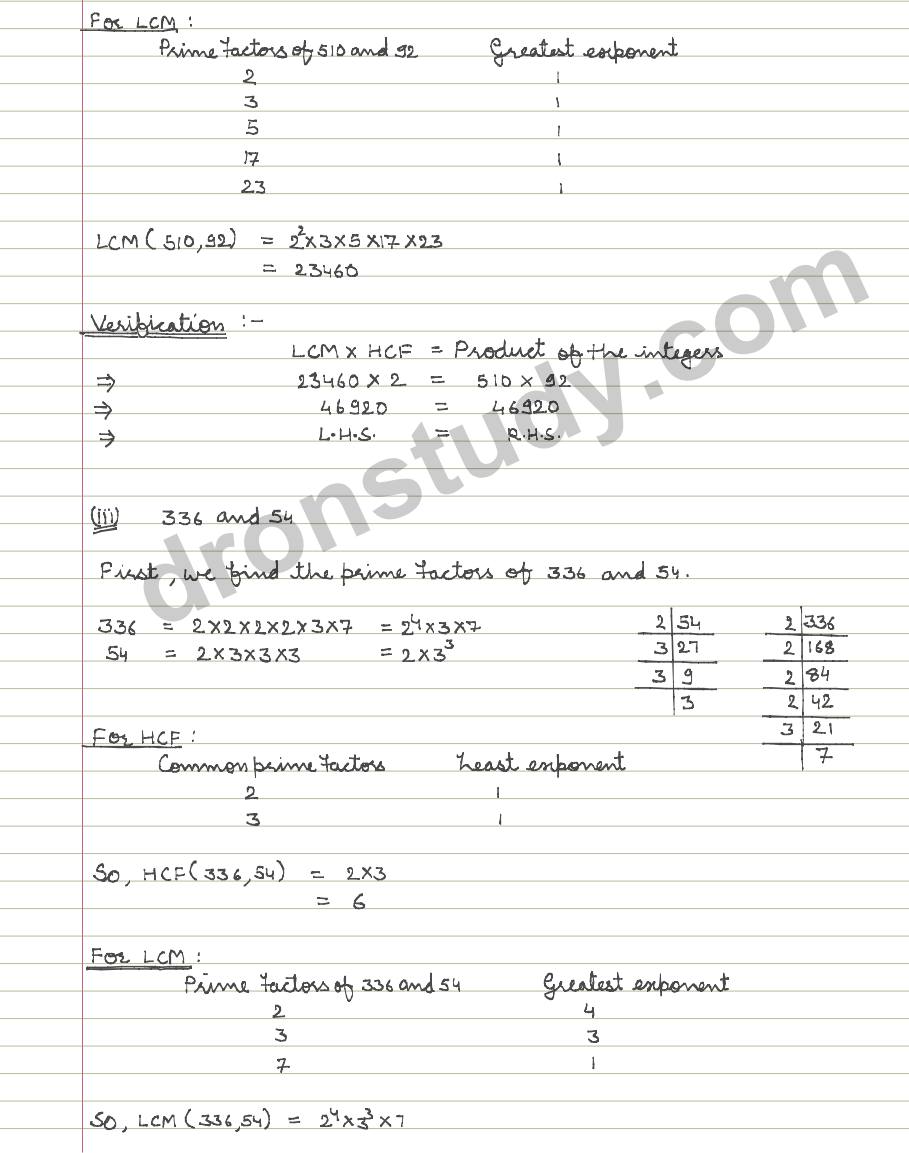 For LCM :
Prime factors of 510 and 92 Greatest exponent
2 1
3 1
5 1
17 1
23 1
LCM ( 510, 92) = 2²×3×5×17×23
= 23460
Verification :-
LCM × HCF = Product of the integers
⇒ 23460 × 2 = 510 × 92
⇒ 46920 = 46920
⇒ L.H.S. = R.H.S.
(iii) 336 and 54
First, we find the prime factors of 336 and 54.
336 = 2×2×2×2×3×7 = 2⁴×3×7
54 = 2×3×3×3 = 2×3³
2 54
3 27
3 9
3
2 336
2 168
2 84
2 42
3 21
7
For HCF :
Common prime factors Least exponent
2 1
3 1
So, HCF(336,54) = 2×3
= 6
For LCM :
Prime factors of 336 and 54 Greatest exponent
2 4
3 3
7 1
So, LCM (336,54) = 2⁴×3³×7
dronstudy.com